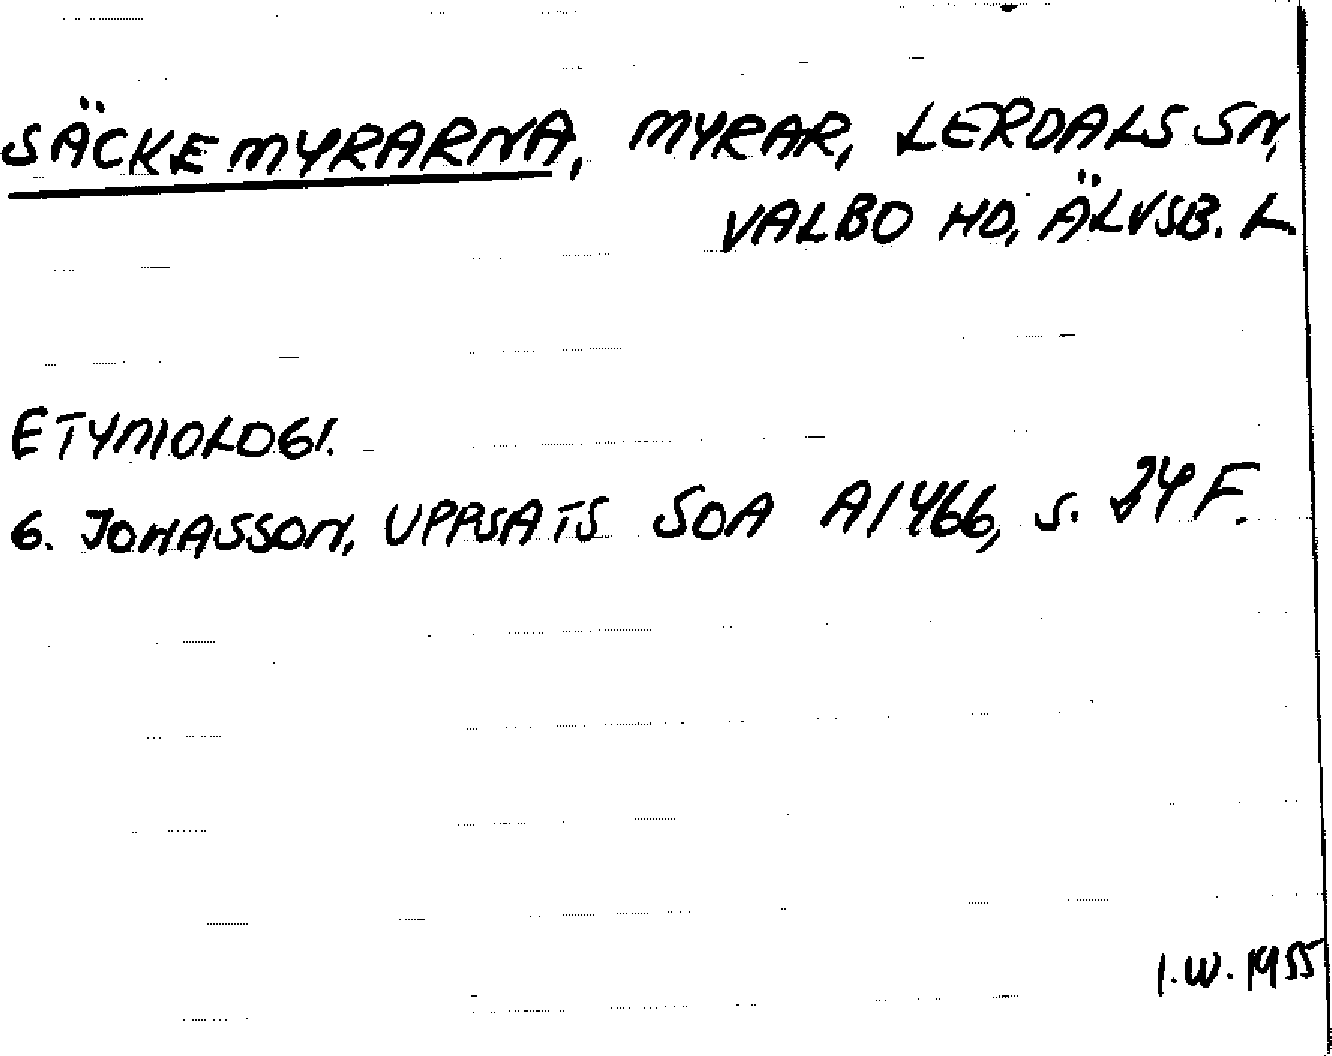 SÄCKEMYRARNA, MYRAR, LERDALS SN,
VALBO HD, ÄLVSB. L.
ETYMOLOGI.
G. JONASSON, UPPSATS SOA A1466, S. 24 F.
I.W. 1955